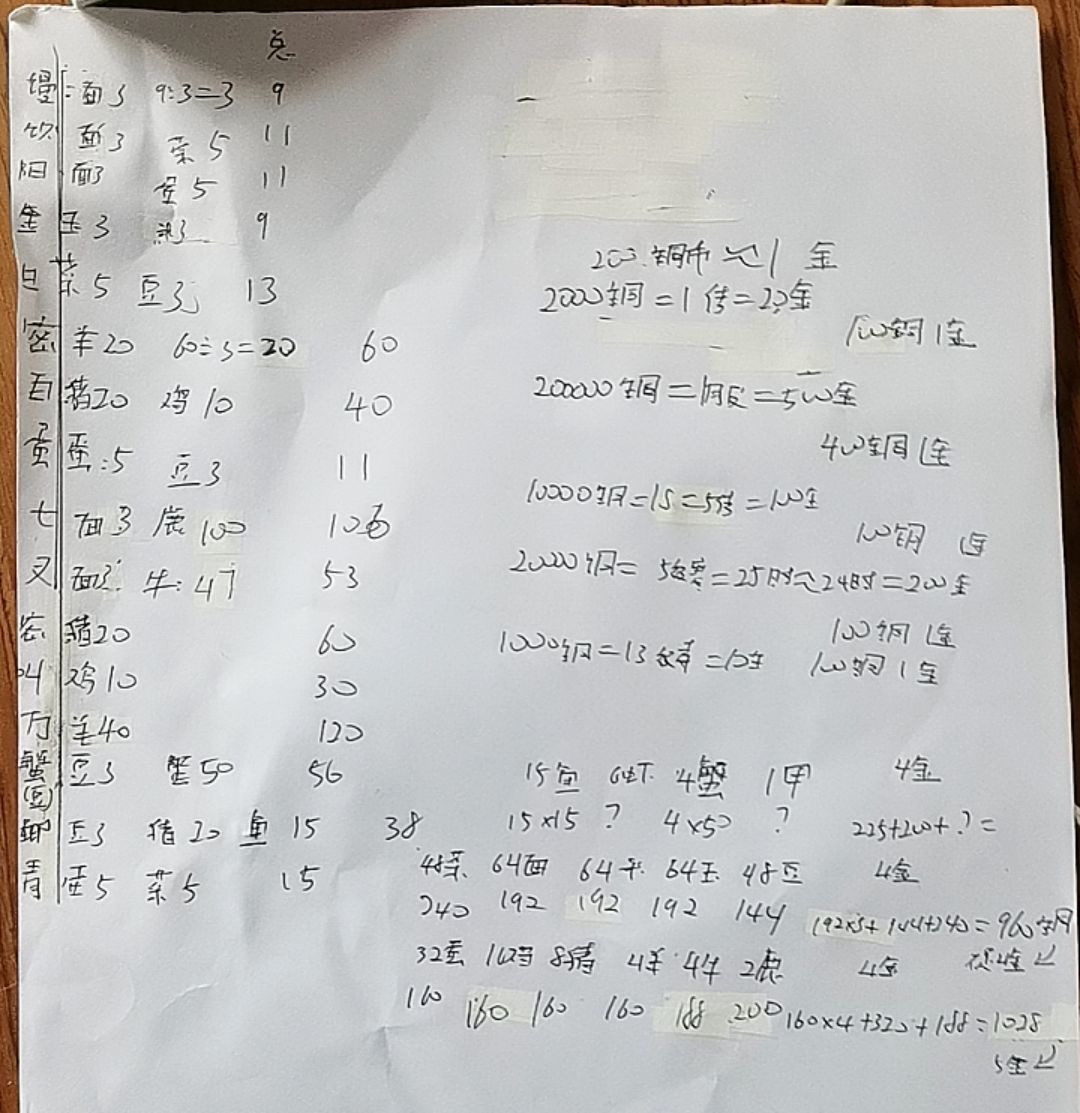 总
馒 面3 9÷3=3 9
饮 面3 菜5 11
阳 面3 蛋5 11
金 玉3 粥3 9
白 菜5 豆3 13
密 羊20 60÷3=20 60
百 猪20 鸡10 40
蛋 蛋:5 豆3 11
七 面3 鹿100 106
叉 面3: 牛:47 53
密 猪20 60
叫 鸡10 30
万 羊40 120
蟹(豆) 豆3 蟹50 56
豆3 猪20 鱼15 38
青 蛋5 菜5 15
200铜币~1金
2000铜=1传=20金
100铜1金
200000铜=1月=500金
400铜1金
10000铜=15=5传=100金
100铜 1金
20000铜= 5=25时~24时=200金
100铜1金
1000铜=13=10金 100铜1金
15鱼 6虾 4蟹 1甲 4金
15×15 ? 4×50 ? 225+200+?=
48菜 64面 64 64玉 48豆 4金
240 192 192 192 144 192×3+144+240=960铜
32蛋 16鸡 8猪 4羊 4牛 2鹿 4金
160 160 160 160 188 200 160×4+320+188=1028
5金